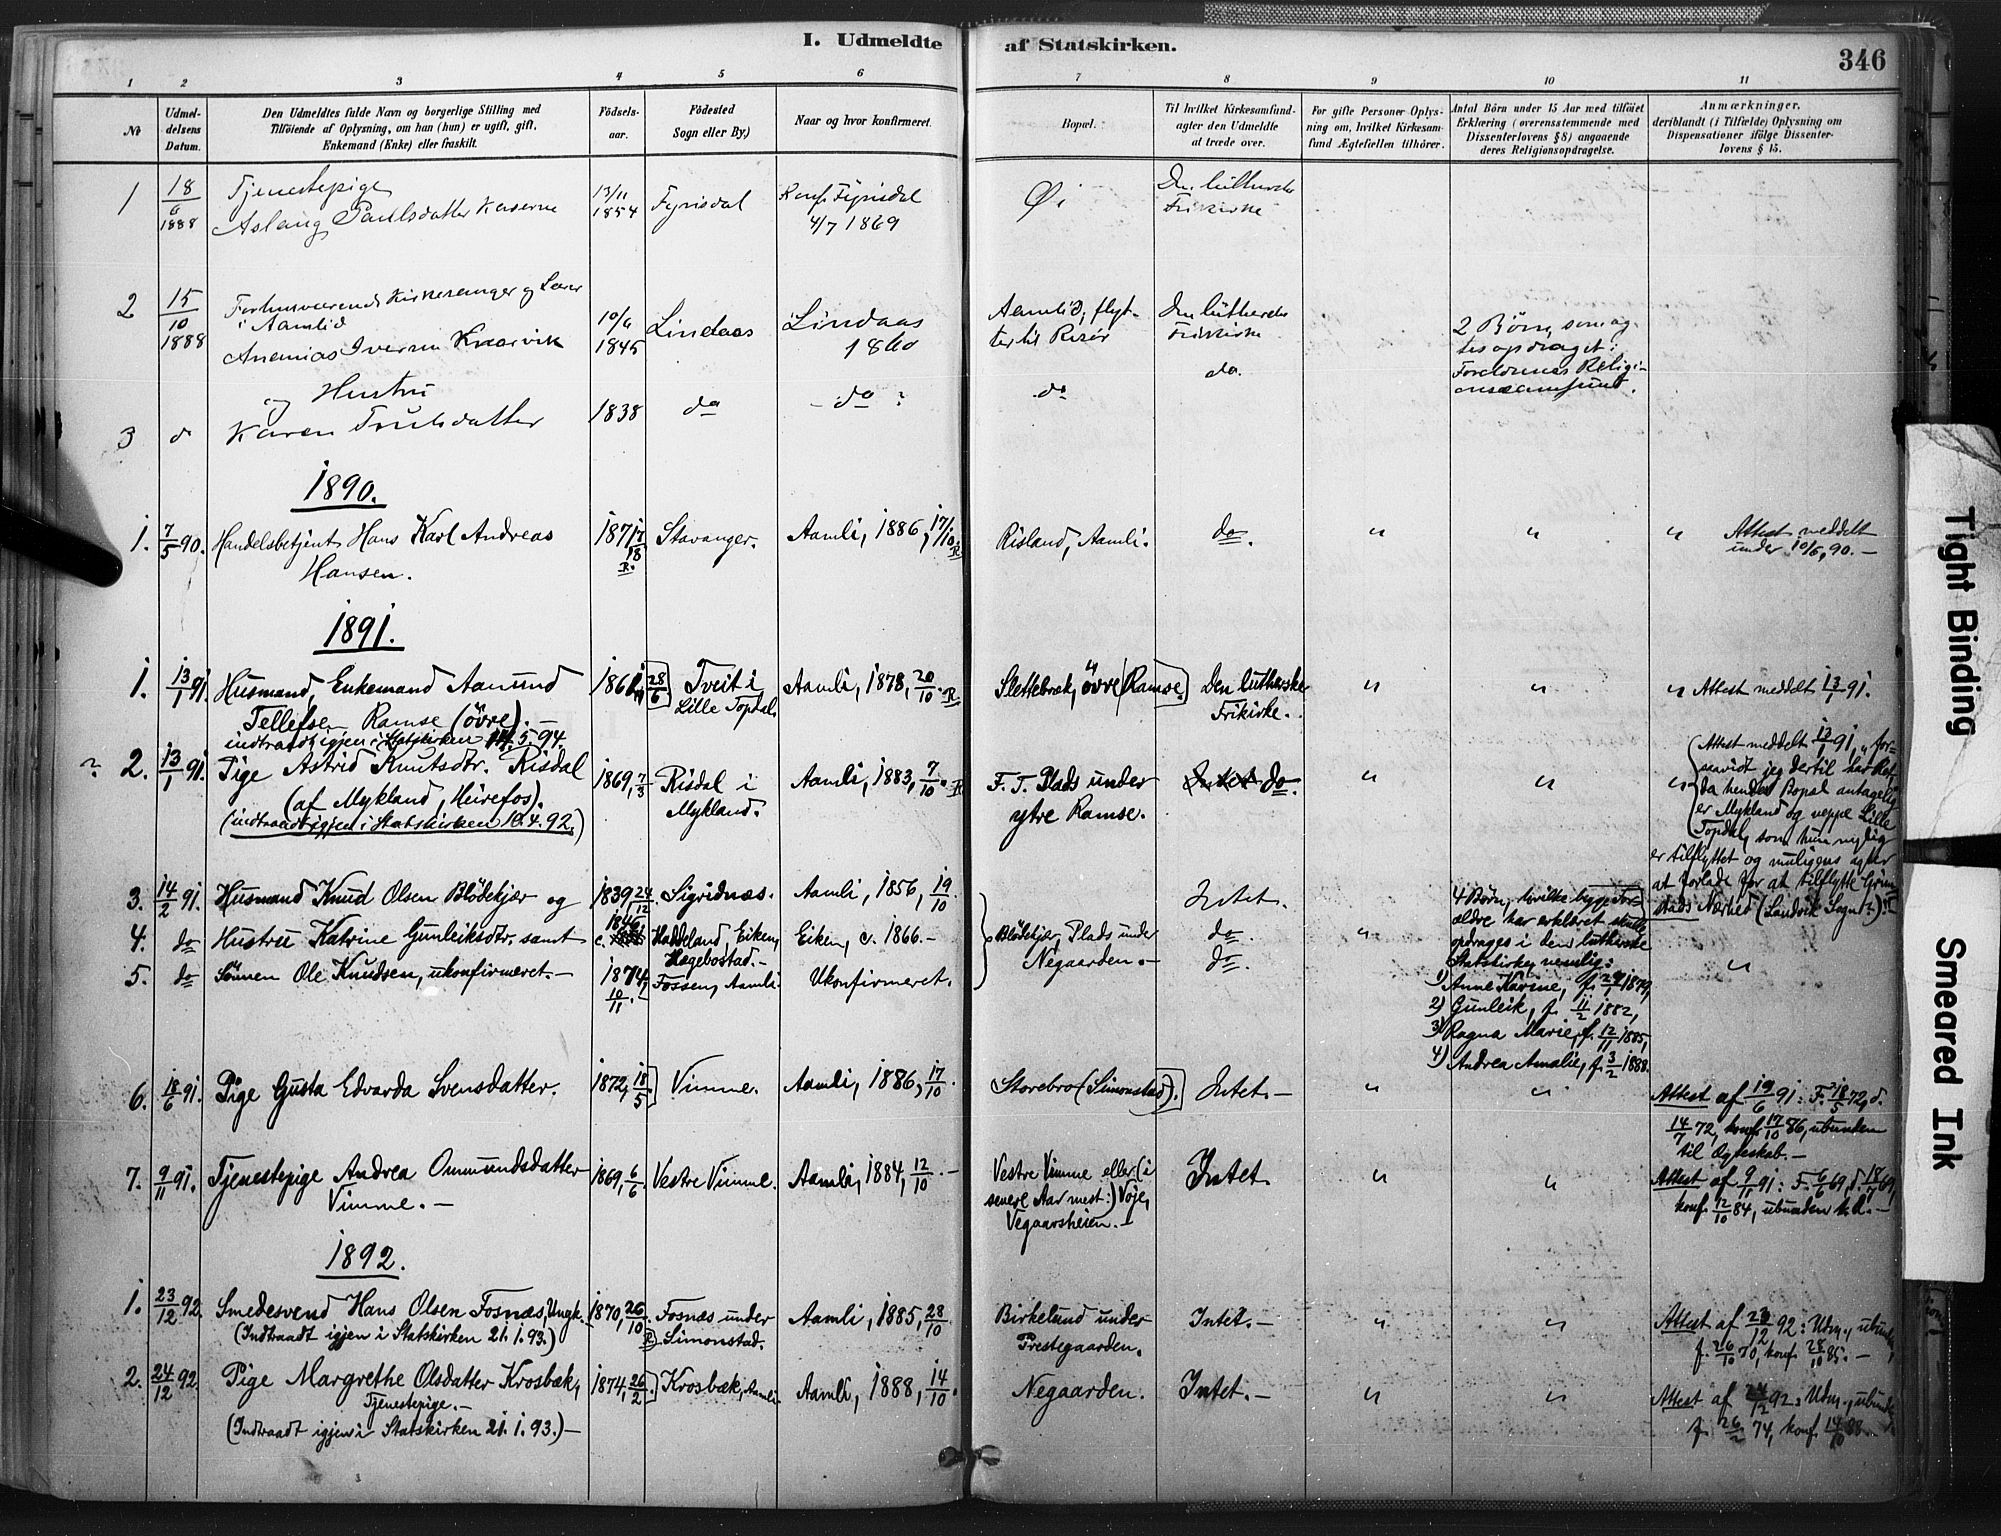 I. Udmeldte af Statskirken.
346
1 2 3 4 5 6 7 8 9 10 11
No
Udmeldelsens Datum.
Den Udmeldtes fulde Navn og borgerlige Stilling med
Tilföiende af Oplysning, om han (hun) er ugift, gift,
Enkemand (Enke) eller fraskilt.
Födselsaar.
Födested
Sogn eller By,)
Naar og hvor konfirmeret.
Bopæl.
Til hvilket Kirkesamfund
agter den Udmeldte
at træde over.
For gifte Personer Oplys-
ning om, hvilket Kirkesam-
fund Ægtefællen tilhörer.
Antal Börn under 15 Aar med tilföiet
Erklæring (overensstemmende med
Dissenterlovens § 8) angaaende
deres Religionsopdragelse.
Anmærkninger,
deriblandt (i Tilfælde) Oplysning om
Dispensationer ifölge Dissenter-
lovens § 15.
1 18/6 1888 Tjenestepige 13/11 1854 Fyrisdal Konf. Fyrisdal 4/7 1869 Øi Den lutherske Frikirke
Aslaug Paulsdatter
2 15/10 1888 Forhenværende Kirkesanger og Lærer
i Aamlid
Ananias Iversen Knarvik 10/6 1845 Lindaas Lindaas 1860 Aamlid, flyt-
ter til Risör Den lutherske Frikirke 2 Børn, som ag-
tes opdraget i
Forældrenes Religi-
onssamfund.
og Hustru
3 d Karen Trulsdatter 1838 do do ? do do.
1890.
1. 7/5 90. Handelsbetjent Hans Karl Andreas
Hansen. 1871 17/18 R. Stavanger. Aamli, 1886, 17/10. R Risland, Aamli. do. " " " Attest meddelt
under 10/5, 90. –
1891.
1. 13/1 91. Husmand, Enkemand Aanund
Tellefsen Ramse (övre). –
indtraadt igjen i Statskirken 14. 5. 94.
1861 28/6 Tveit i
Lille Topdal. Aamli, 1878, 20/10. R Slettebræk, övre (Ramse.) Den lutherske
Frikirke. " " " Attest meddelt 13/1 91.
? 2. 13/1 91. Pige Astrid Knutsdtr. Risdal
(af Mykland, Heirefos).
(indtraadt igjen i Statskirken 10. 4. 92.)
1869, 7/3 Risdal i
Mykland. Aamli, 1883, 7/10. R F. T. Plads under
ytre Ramse. Intet do. " " "
Attest meddelt 13/1 91, "for-
saavidt jeg dertil har Ret,
da hendes Bopæl antagelig
er Mykland og neppe Lille
Topdal, som hun nylig
er tilflyttet og muligens agter
at forlade for at tilflytte Grim-
stads Nærhed (Landvik Sogn?)."
3. 14/2 91. Husmand Knud Olsen Blödekjær og 1839, 24/12 Sigridnæs. Aamli, 1856, 19/10. Intet.
4. do Hustru Katrine Gunleiksdtr. samt c. 1846 Haddeland, Eiken,
Hægebostad. – Eiken, c. 1866. – Blödekjær, Plads under
Negaarden. – do. "
5. do Sönnen Ole Knudsen, ukonfirmeret. – 1874, 10/11. – Fossen, Aamli. Ukonfirmeret. do. "
4 Børn, hvilke begge For-
ældre har erklæret skulle
opdrages i den lutherske
Statskirke, nemlig:
1) Anne Karine, f. 29/1 1879,
2) Gunleik, f. 11/2 1882,
3) Ragna Marie, f. 12/11 1885,
4) Andrea Amalie, f. 3/2 1888.
6. 18/6 91. Pige Gusta Edvarda Svensdatter. 1872, 18/5 Vimme. Aamli, 1886, 17/10. Storebro (Simonstad). Intet. – " " Attest af 19/6 91: F. 18/5 72, d.
14/7 72, konf. 17/10 86, ubunden
til Ægteskab. –
7. 9/11 91. Tjenestepige Andrea Ommundsdatter
Vimme. – 1869, 6/6 Vestre Vimme. Aamli, 1884, 12/10. – Vestre Vimme eller (i
senere Aar mest:) Voje,
Vegaarsheien. – Intet. " " Attest af 9/11 91: F. 6/6 69, d. 18/7 69,
konf. 12/10 84, ubunden
1892.
1. 23/12 92. Smedesvend Hans Olsen Fosnæs, Ungk.
(Indtraadt igjen i Statskirken 21. 1. 93.)
1870, 26/10. R Fosnæs under
Simonstad. Aamli, 1885, 28/10. Birkelund under
Prestegaarden. Intet. – " " Attest af 23/12 92: Udm., ubunden,
f. 26/10 70, konf. 28/10 85. –
2. 24/12 92. Pige Margrethe Olsdatter Krosbæk,
Tjenestepige. –
(Indtraadt igjen i Statskirken 21. 1. 93.) –
1874, 26/2. Krosbæk, Aamli. Aamli, 1888, 14/10. Negaarden. Intet. – " " Attest af 24/12 92: Udm., ubunden
f. 26/2 74, konf. 14/10 88. –
Tight Binding
Smeared Ink